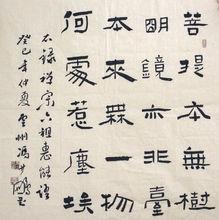 菩提本無樹
明鏡亦非臺
本來無一物
何處惹塵埃
錄禪宗六祖惠能
癸巳年仲夏雲州馮